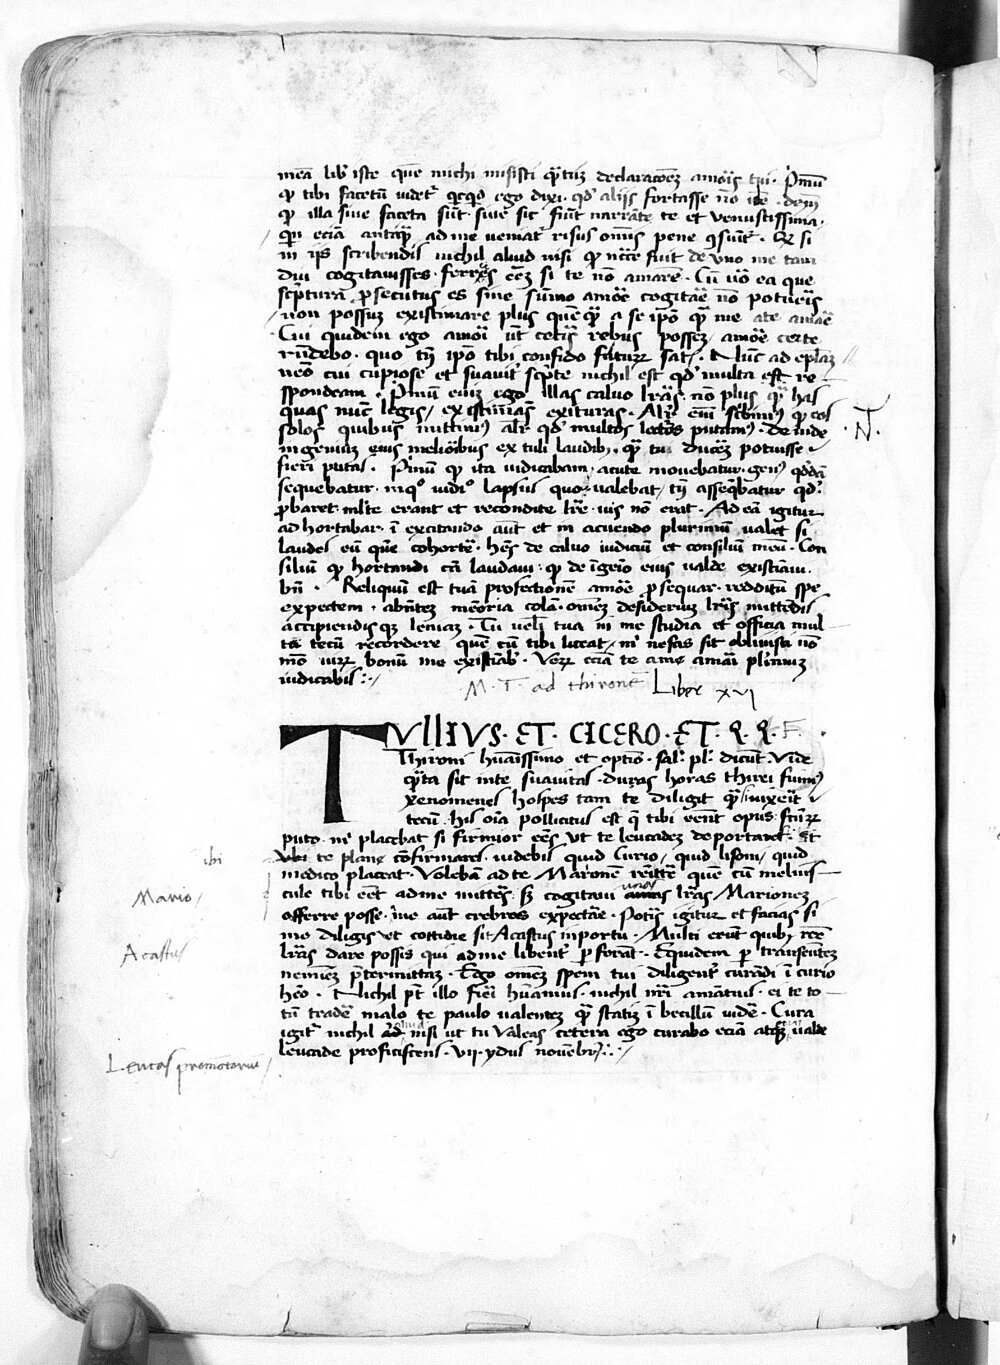 meā lib' iste quē michi misisti q̄ntū declaracōēz amōis tui. Pmū
qp tibi facetū videt' qcqd ego dixi. qd' alijs fortasse nō
qp illa siue faceta sūt. siue sic fiūt narrāte te et venustissima.
qn eciā anteq̄ ad me veniat' risus omīs pene 9sūit'. Q si
in ijs scribendis nichil aliud nisi qp ncc̄e fuit de vno me tam
diu cogitauisses. ferr9 eēz si te nō amarē. Cū v̄o ea que
sc̄ptura p̄secutus es sine sūmo amōe cogitāe nō potueis
non possuz existimare plus quēq̄ a se ip̄o q̄ me a te amāe
Cui quidem ego amōi ūt cetis rebus possez, amōe certe
rn̄debo. quo tn̄ ip̄o tibi confido futur satis. Nūc ad eplāz
venio cui cupiose et suauit' sc̄pte nichil est qd' multa est re
spondeam. Pmū eniz ego illas caluo lrās nō plus q̄ has
quas nūc legis, existimās exituras. Alr' eni scbim9 qp eos
solos quibus mittim9 alr' qd' multos lectōs putam9. de inde
ingenium eius meliōibus extuli laudib9. q̄ tu ducez potuisse
fieri putas. Pmū qp ita iudicabam. acute mouebatur. gen9 qddā
sequebatur. in quo iudio lapsus quo ualebat, tn̄ asseqbatur qd'.
p̄baret. mlte erant et recondite lrē. uis nō erat. Ad eā igitur
ad hortabar. ī excitando aūt et in acuendo plurimū ualet si
laudes eū quē cohortē. hēs de caluo iudiciū et consiliū meū. Con
siliū qp hortandi cā laudaui. qp de īgeio eius valde existīaui.
bn̄. Reliquū est tuā profectionē amōe p̄sequar. redditū spe
expectem. abn̄tez meōria colā. omēz desideriuz lrīs mittēdis
accipiendisq; leniaz. Tu uelī tua in me studia et officia mul
ta tecū recordere quē cū tibi liceat, m' nefas sit obliuisci nō
mō uir bonū me existīab'. Verz eciā te a me amāi plimuz
iudicabis :·
M. T. ad thironē Liber xvi
TULLIUS. ET. CICERO. ET. Q. Q. F.
Thironi hūaīssimo et optīo. sal. pl. dicūt. Vide
q̄nta sit in te suauitas. duas horas thirei fuim9
xenomenes hospes tam te diligit q̄ si uixeit
tecū. his oīa pollicitus est q̄ tibi eēnt opus. fctūr
puto. m' placebat si firmior eēs ut te leucadez deportaret. et
vbi te plane cōfirmares. videbis quid Curio, quid lisoni, quid
medico placeat. Volebā ad te Marōnē reittē quē cū melius
cule tibi eēt ad me mittēs. Sz cogitaui unas lrās Marionez
afferre posse. me aūt crebras expectāe. Poteis igitur et facias si
me diligis ut cottidie sit Acastus in portu. Multi erūt quib9 rcē
lrās dare possis qui ad me libent' p̄ferant. Equidem p transeuntez
neminez p̄termittaz. Ego omēz spem tui diligent' curādi ī curio
hēo. Nichil pt' illo fiei hūanius. nichil nr̄i amātius. ei te to
tū tradē malo te paulo ualentez q̄ statiz ī becillū vidē. Cura
igit' nichil aliud nisi ut tu valeas cetera ego curabo eciā atq; ualde
leucade proficiscens. vii. ydus nouēbr' :·
T
N.
ibi
Mario,
Acastus
Leucas promōtoriū